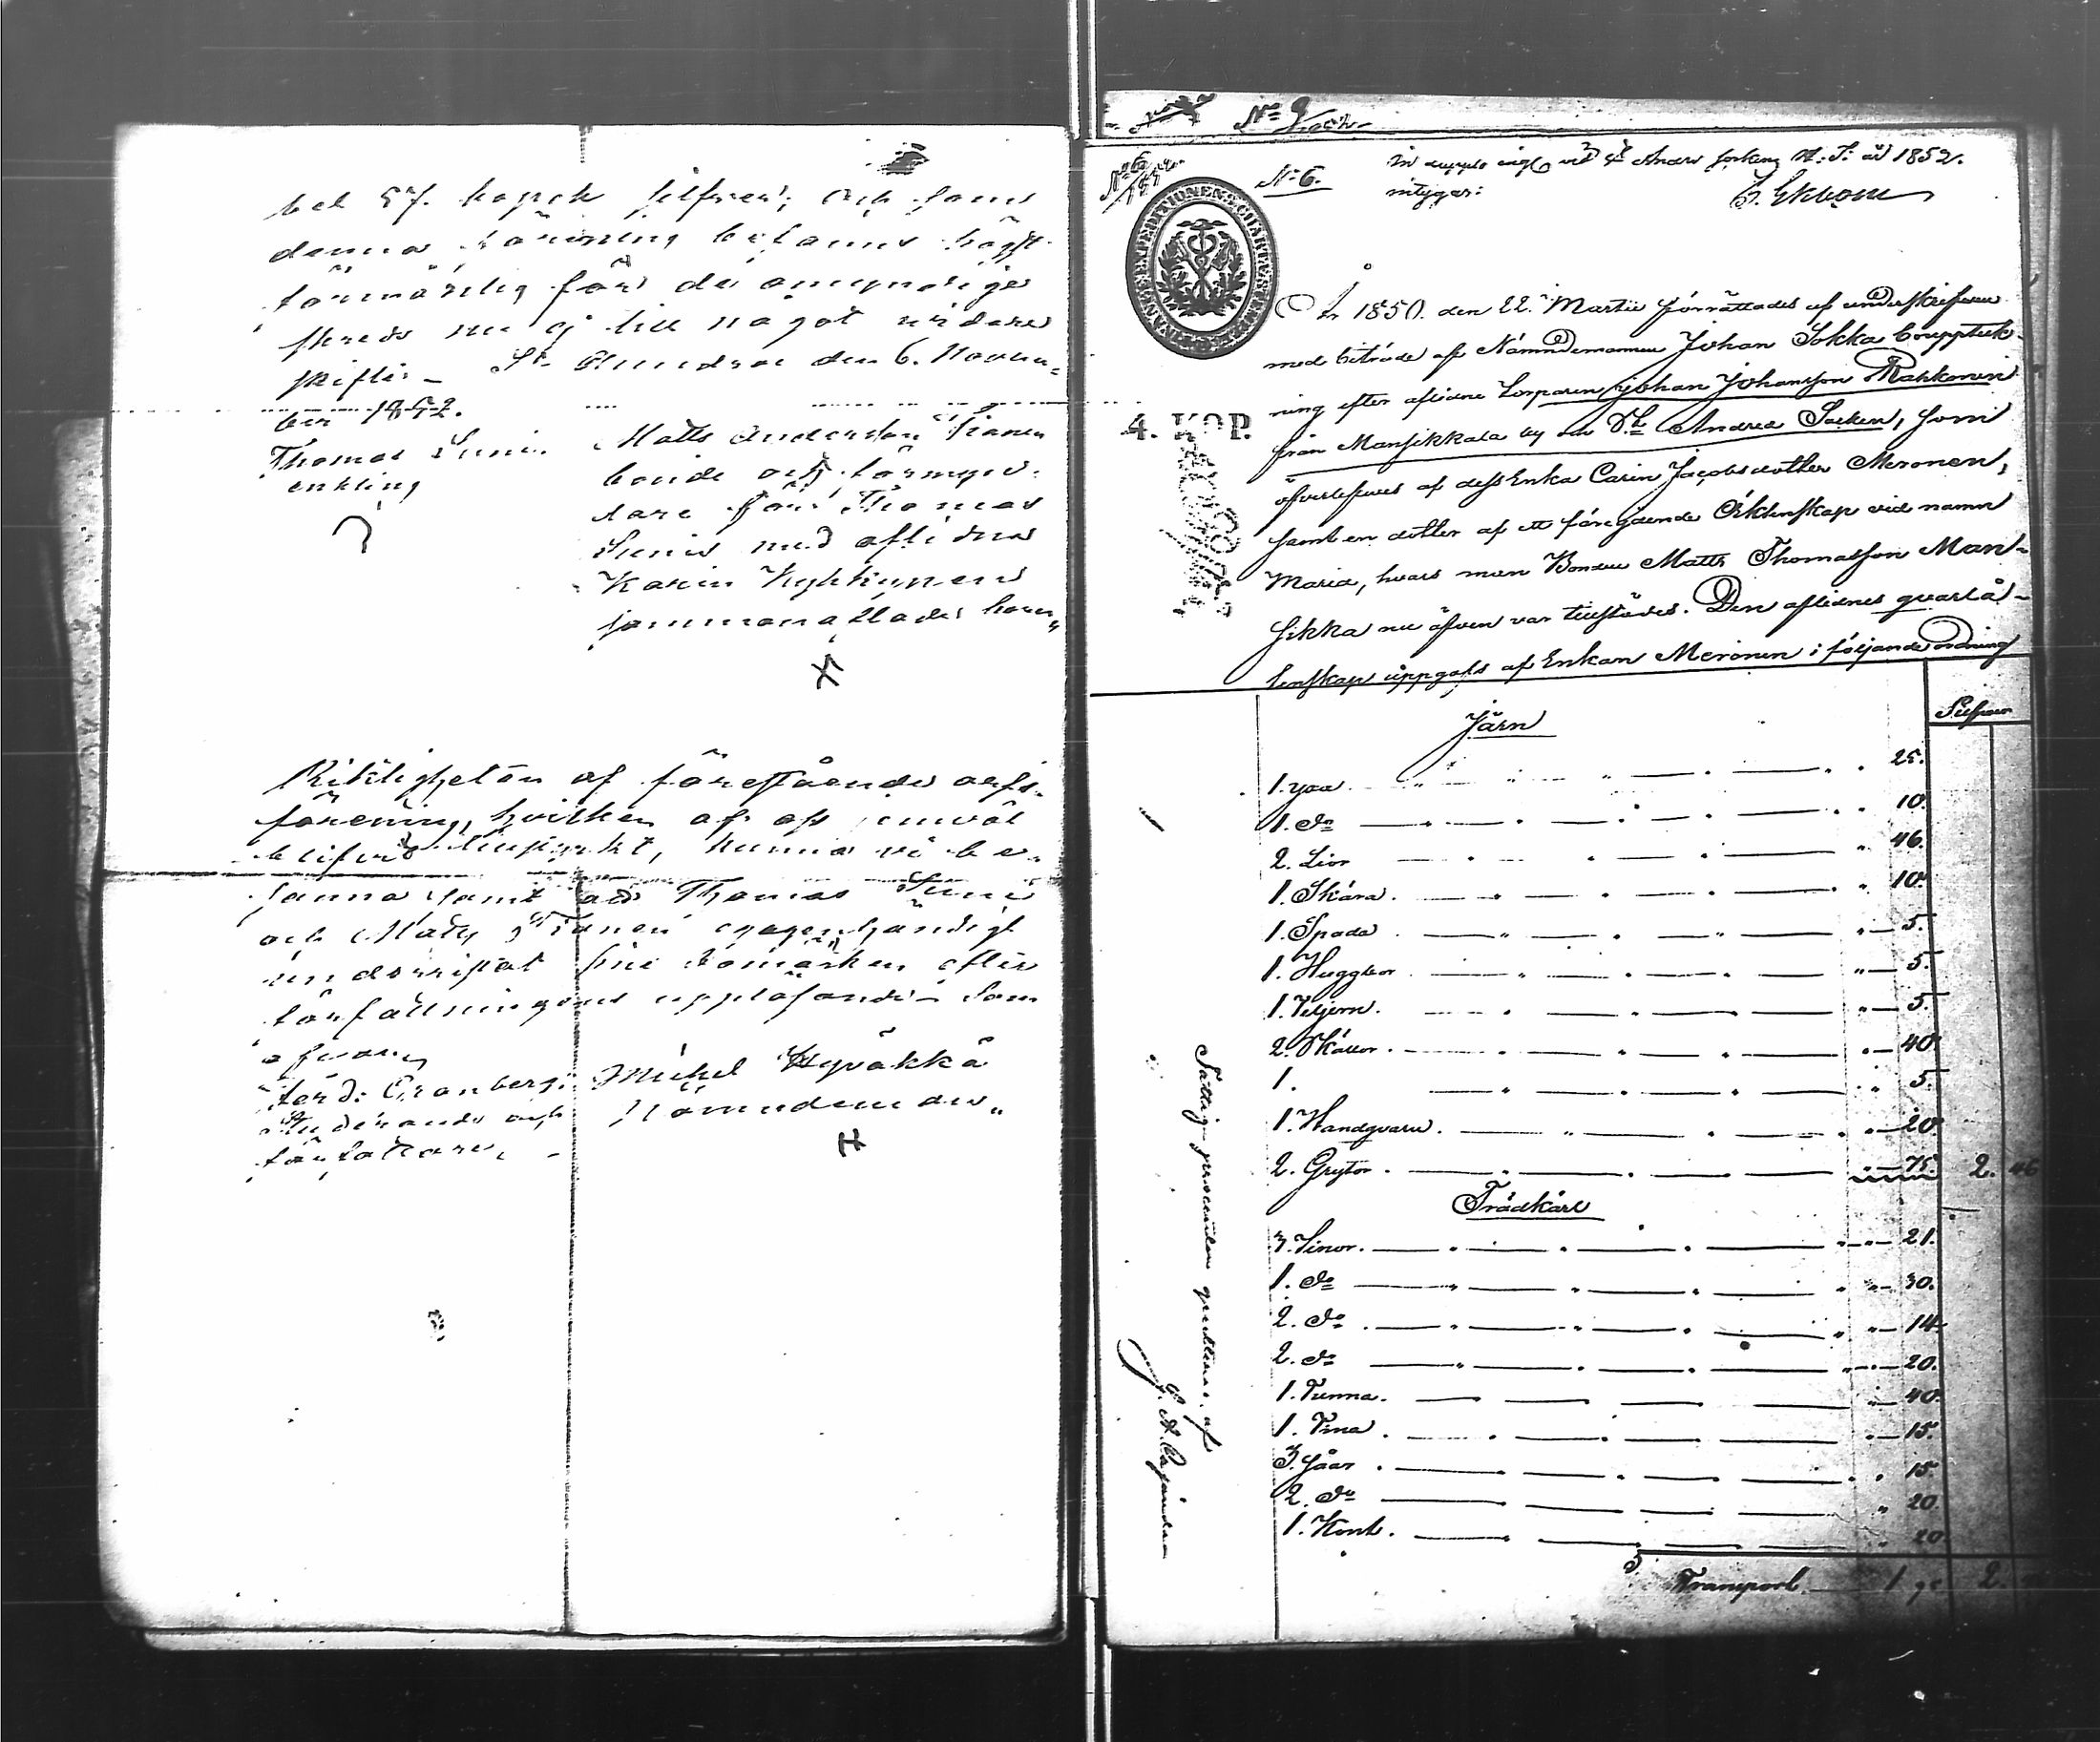 bel 57. kopek silfver; och som
denna förening befanns högst
förmånlig för de omyndige
skreds nu ej till något vidare
skifte. St Andreæ den 6. Novem=
ber 1852.
Thomas Suni. Matts Andersson
enkling bonde och förmyn-
dare för Thomas
Sunis med aflidna
Karin Kykkynen
sammanaflade barn
Riktigheten af förestående arfs-
förening, hvilken af oss
blifvit tillstyrkt, kunna vi be-
samt att Thomas Suni
och Matts egenhändigt
underritat sine bomärken efter
författningens uppläsande. Som
ofvan
Ferd: Granberg. Michel Hyväkkä
Studerande och Nämndeman
författare.
No 9
No 6. In duplo ingifv. vid St Andreæ sockens W. T. år 1852.
intygar: Ekbom
År 1850. den 22. Martii förrättades af undertecknad
med biträde af Nämndemannen Johan Sokka bouppteck-
ning efter aflidne Torparen Johan Johansson Rahkonen
4. KOP.
från Mansikkala by och St Andreæ Socken, som
öfverlefves af dess Enka Carin Jacobsdotter Meronen,
samt en dotter af ett föregående Äktenskap vid namn
Maria, hvars man Bonden Matts Thomasson Man-
sikka nu äfven var tillstädes. Den aflidnes qvarlå-
tenskap uppgafs af Enkan Meronen i följande ordning
Silfver
Järn
1. yxa 25.
1. do 10.
2. Liar 46.
1. Skära. 10.
1. Spada 5.
1. Huggbor 5.
1. Veljern. 5.
2. Skällor. 40.
1. 5.
1. Handqvarn. 20.
2. Grytor. 75. 2. 46
Trädkäril
3. Tinor. 21.
1. do 30.
2. do 14.
2. do 20.
1. Tunna. 40.
1. Tina. 15.
3. Såar. 15.
2. do 20.
1. Korb. 20
Transport 1 95 2.
Fattig procenten qvitteras. af